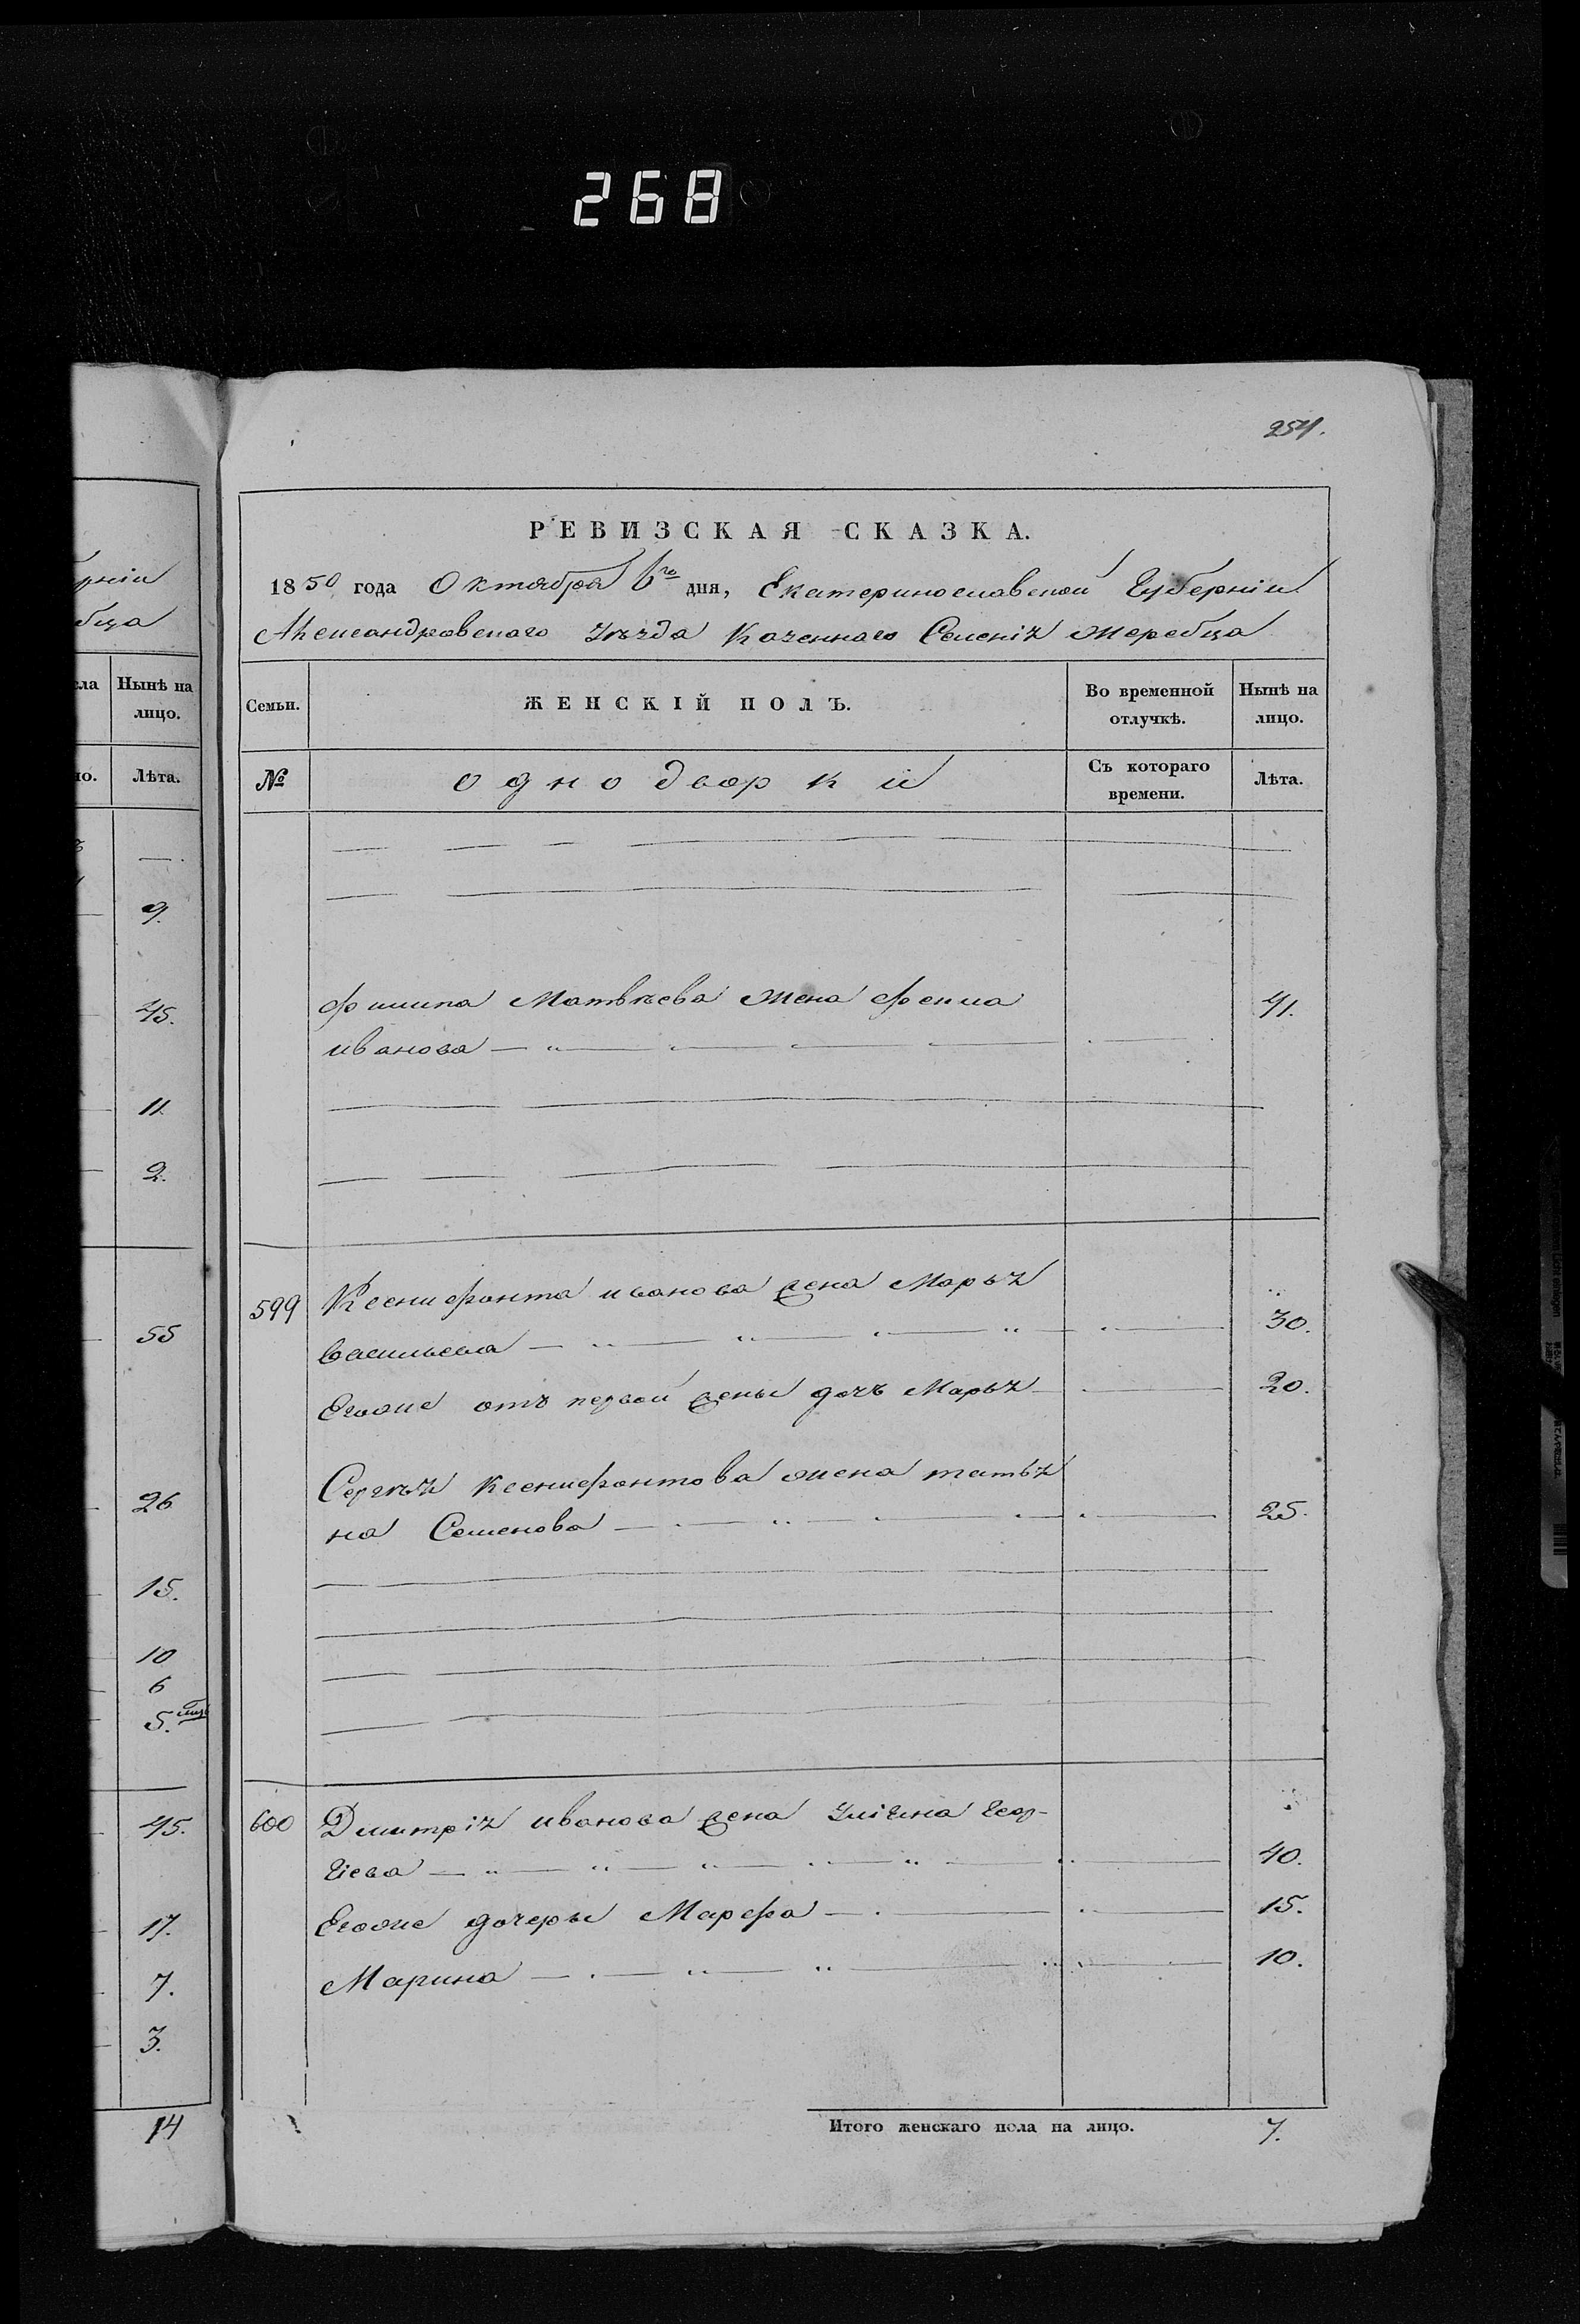 268
254.
рніи
бца
ла Нынѣ на
лицо.
но. Лѣта.
9.
45.
11
2.
55
26
15.
10
6
5.
45.
17.
7.
3.
14
РЕВИЗСКАЯ СКАЗКА.
1850 года Октября 6го дня, Екатеринославской Губерніи
Александровскаго уѣзда Казеннаго Селенія Жеребца
Семьи. ЖЕНСКІЙ ПОЛЪ. Во временной отлучкѣ. Нынѣ на лицо.
№ однодворки Съ котораго времени. Лѣта.
Филипа Матвѣева жена Фекла 41.
иванова
599 Ксенифонта иванова жена Марья
васильева 30.
Егоже отъ первой жены дочь Марья 20.
Сергѣя Ксенифонтова жена татья
на Семенова 25.
600 Дмитрія иванова жена улияна Геор-
гіева 40.
Егоже дочеры Марфа 15.
Марина 10.
Итого женскаго пола на лицо. 7.